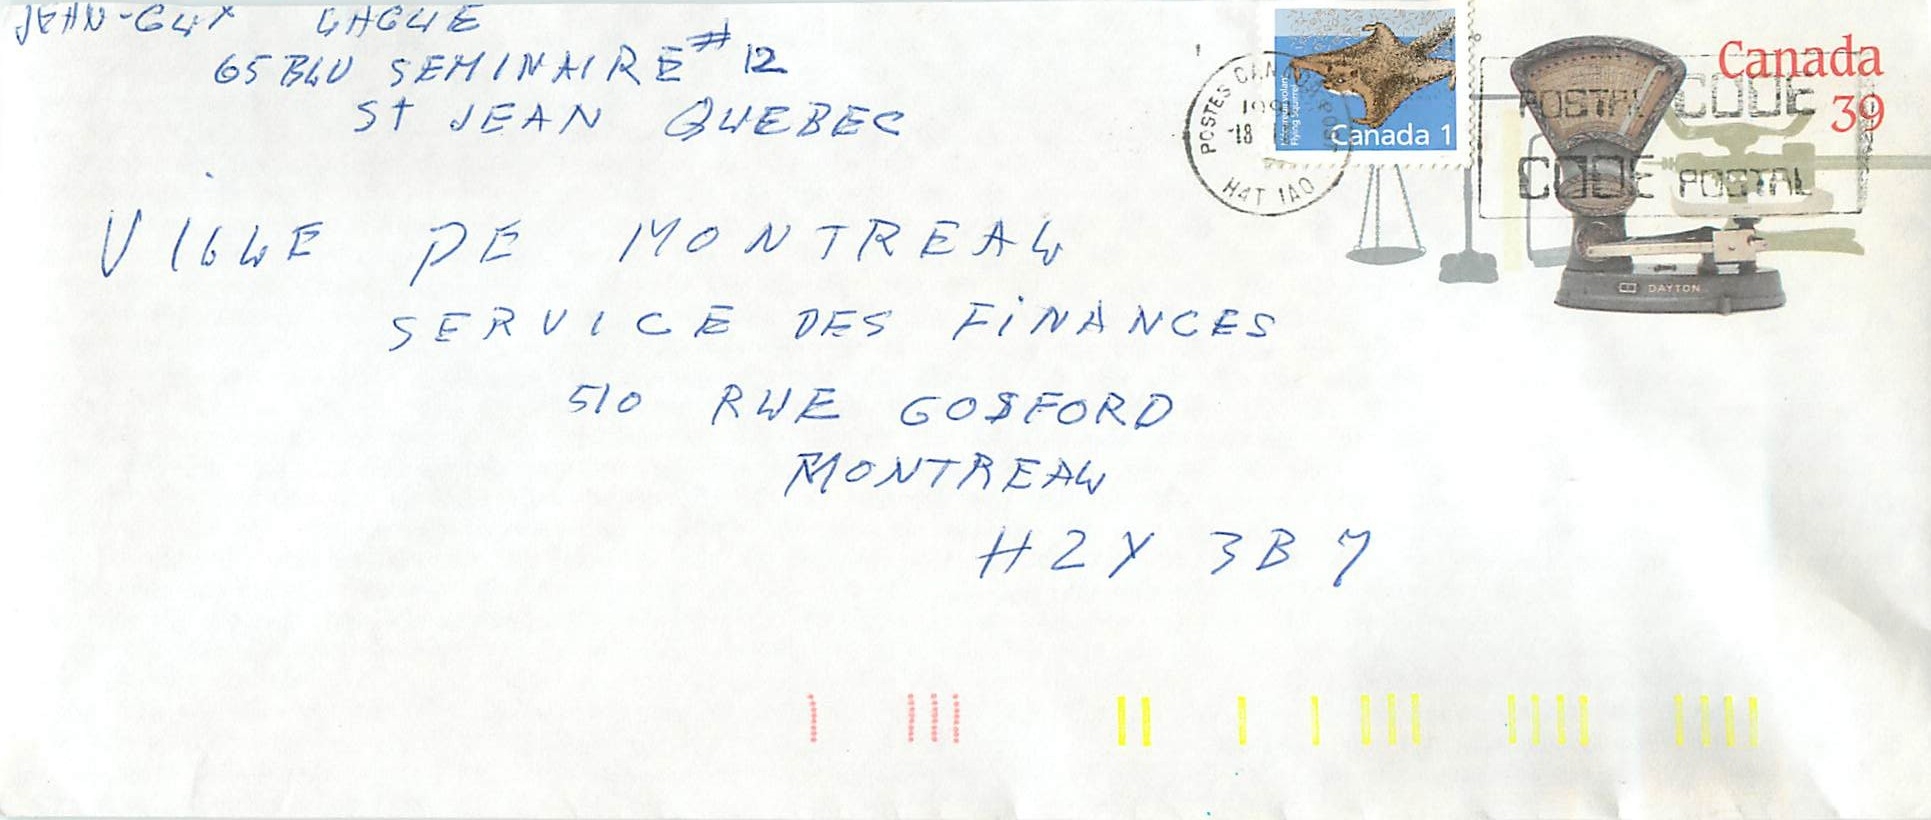 JEAN-GUY LAGUE
65 BLV SEMINAIRE # 12
ST JEAN QUEBEC
VILLE DE MONTREAL
SERVICE DES FINANCES
510 RUE GOSFORD
MONTREAL
H2Y 3B7
POSTES CAN
18
H4T 1A0
Flying Squirrel
Canada 1
Canada
39
POSTAL CODE
CODE POSTAL
DAYTON